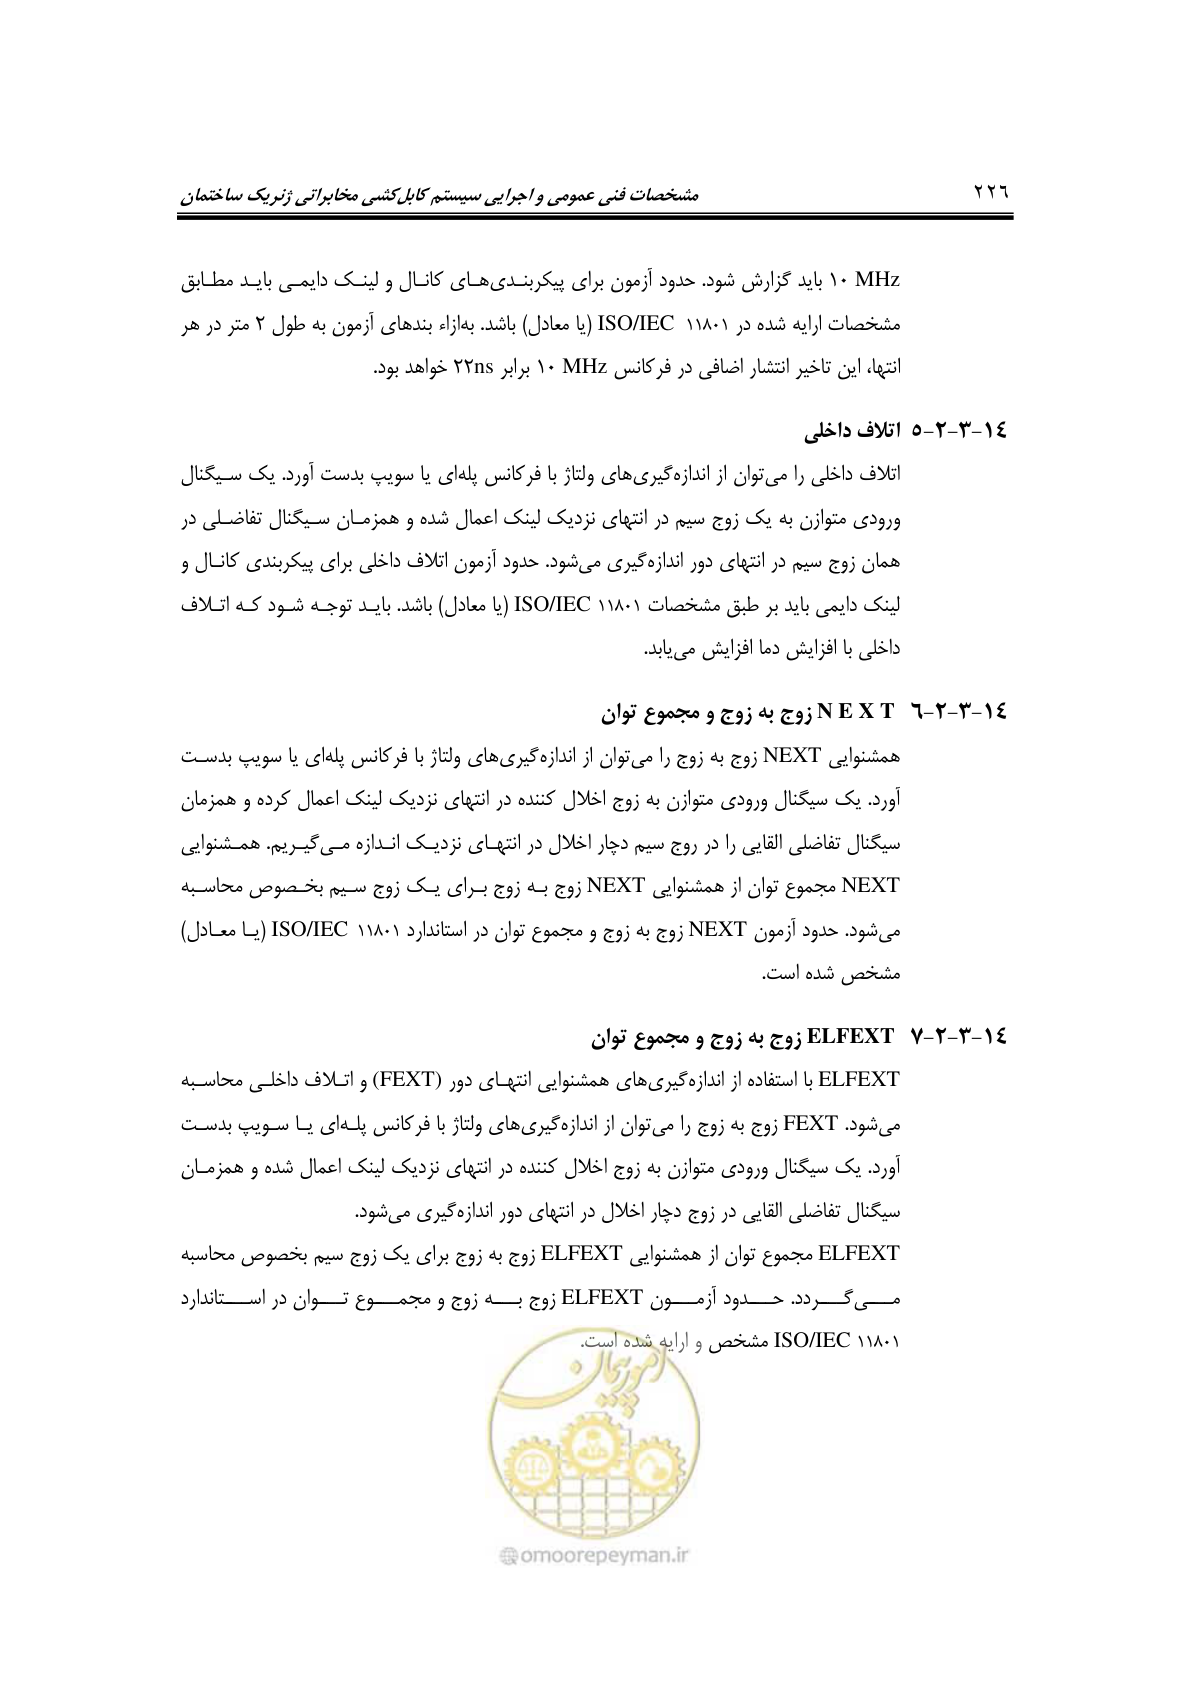 ۲۲۶
مشخصات فنی عمومی و اجرایی سیستم کابل‌کشی مخابراتی ژنریک ساختمان
۱۰ MHz باید گزارش شود. حدود آزمون برای پیکربندی‌های کانال و لینک دایمی باید مطابق
مشخصات ارایه شده در ISO/IEC ۱۱۸۰۱ (یا معادل) باشد. به‌ازاء بندهای آزمون به طول ۲ متر در هر
انتها، این تاخیر انتشار اضافی در فرکانس ۱۰ MHz برابر ۲۲ns خواهد بود.
۱۴-۳-۲-۵ اتلاف داخلی
اتلاف داخلی را می‌توان از اندازه‌گیری‌های ولتاژ با فرکانس پله‌ای یا سویپ بدست آورد. یک سیگنال
ورودی متوازن به یک زوج سیم در انتهای نزدیک لینک اعمال شده و همزمان سیگنال تفاضلی در
همان زوج سیم در انتهای دور اندازه‌گیری می‌شود. حدود آزمون اتلاف داخلی برای پیکربندی کانال و
لینک دایمی باید بر طبق مشخصات ISO/IEC ۱۱۸۰۱ (یا معادل) باشد. باید توجه شود که اتلاف
داخلی با افزایش دما افزایش می‌یابد.
۱۴-۳-۲-۶ N E X T زوج به زوج و مجموع توان
همشنوایی NEXT زوج به زوج را می‌توان از اندازه‌گیری‌های ولتاژ با فرکانس پله‌ای یا سویپ بدست
آورد. یک سیگنال ورودی متوازن به زوج اخلال کننده در انتهای نزدیک لینک اعمال کرده و همزمان
سیگنال تفاضلی القایی را در روج سیم دچار اخلال در انتهای نزدیک اندازه می‌گیریم. همشنوایی
NEXT مجموع توان از همشنوایی NEXT زوج به زوج برای یک زوج سیم بخصوص محاسبه
می‌شود. حدود آزمون NEXT زوج به زوج و مجموع توان در استاندارد ISO/IEC ۱۱۸۰۱ (یا معادل)
مشخص شده است.
۱۴-۳-۲-۷ ELFEXT زوج به زوج و مجموع توان
ELFEXT با استفاده از اندازه‌گیری‌های همشنوایی انتهای دور (FEXT) و اتلاف داخلی محاسبه
می‌شود. FEXT زوج به زوج را می‌توان از اندازه‌گیری‌های ولتاژ با فرکانس پله‌ای یا سویپ بدست
آورد. یک سیگنال ورودی متوازن به زوج اخلال کننده در انتهای نزدیک لینک اعمال شده و همزمان
سیگنال تفاضلی القایی در زوج دچار اخلال در انتهای دور اندازه‌گیری می‌شود.
ELFEXT مجموع توان از همشنوایی ELFEXT زوج به زوج برای یک زوج سیم بخصوص محاسبه
می‌گردد. حدود آزمون ELFEXT زوج به زوج و مجموع توان در استاندارد
ISO/IEC ۱۱۸۰۱ مشخص و ارایه شده است.
امور پیمان
@omoorepeyman.ir